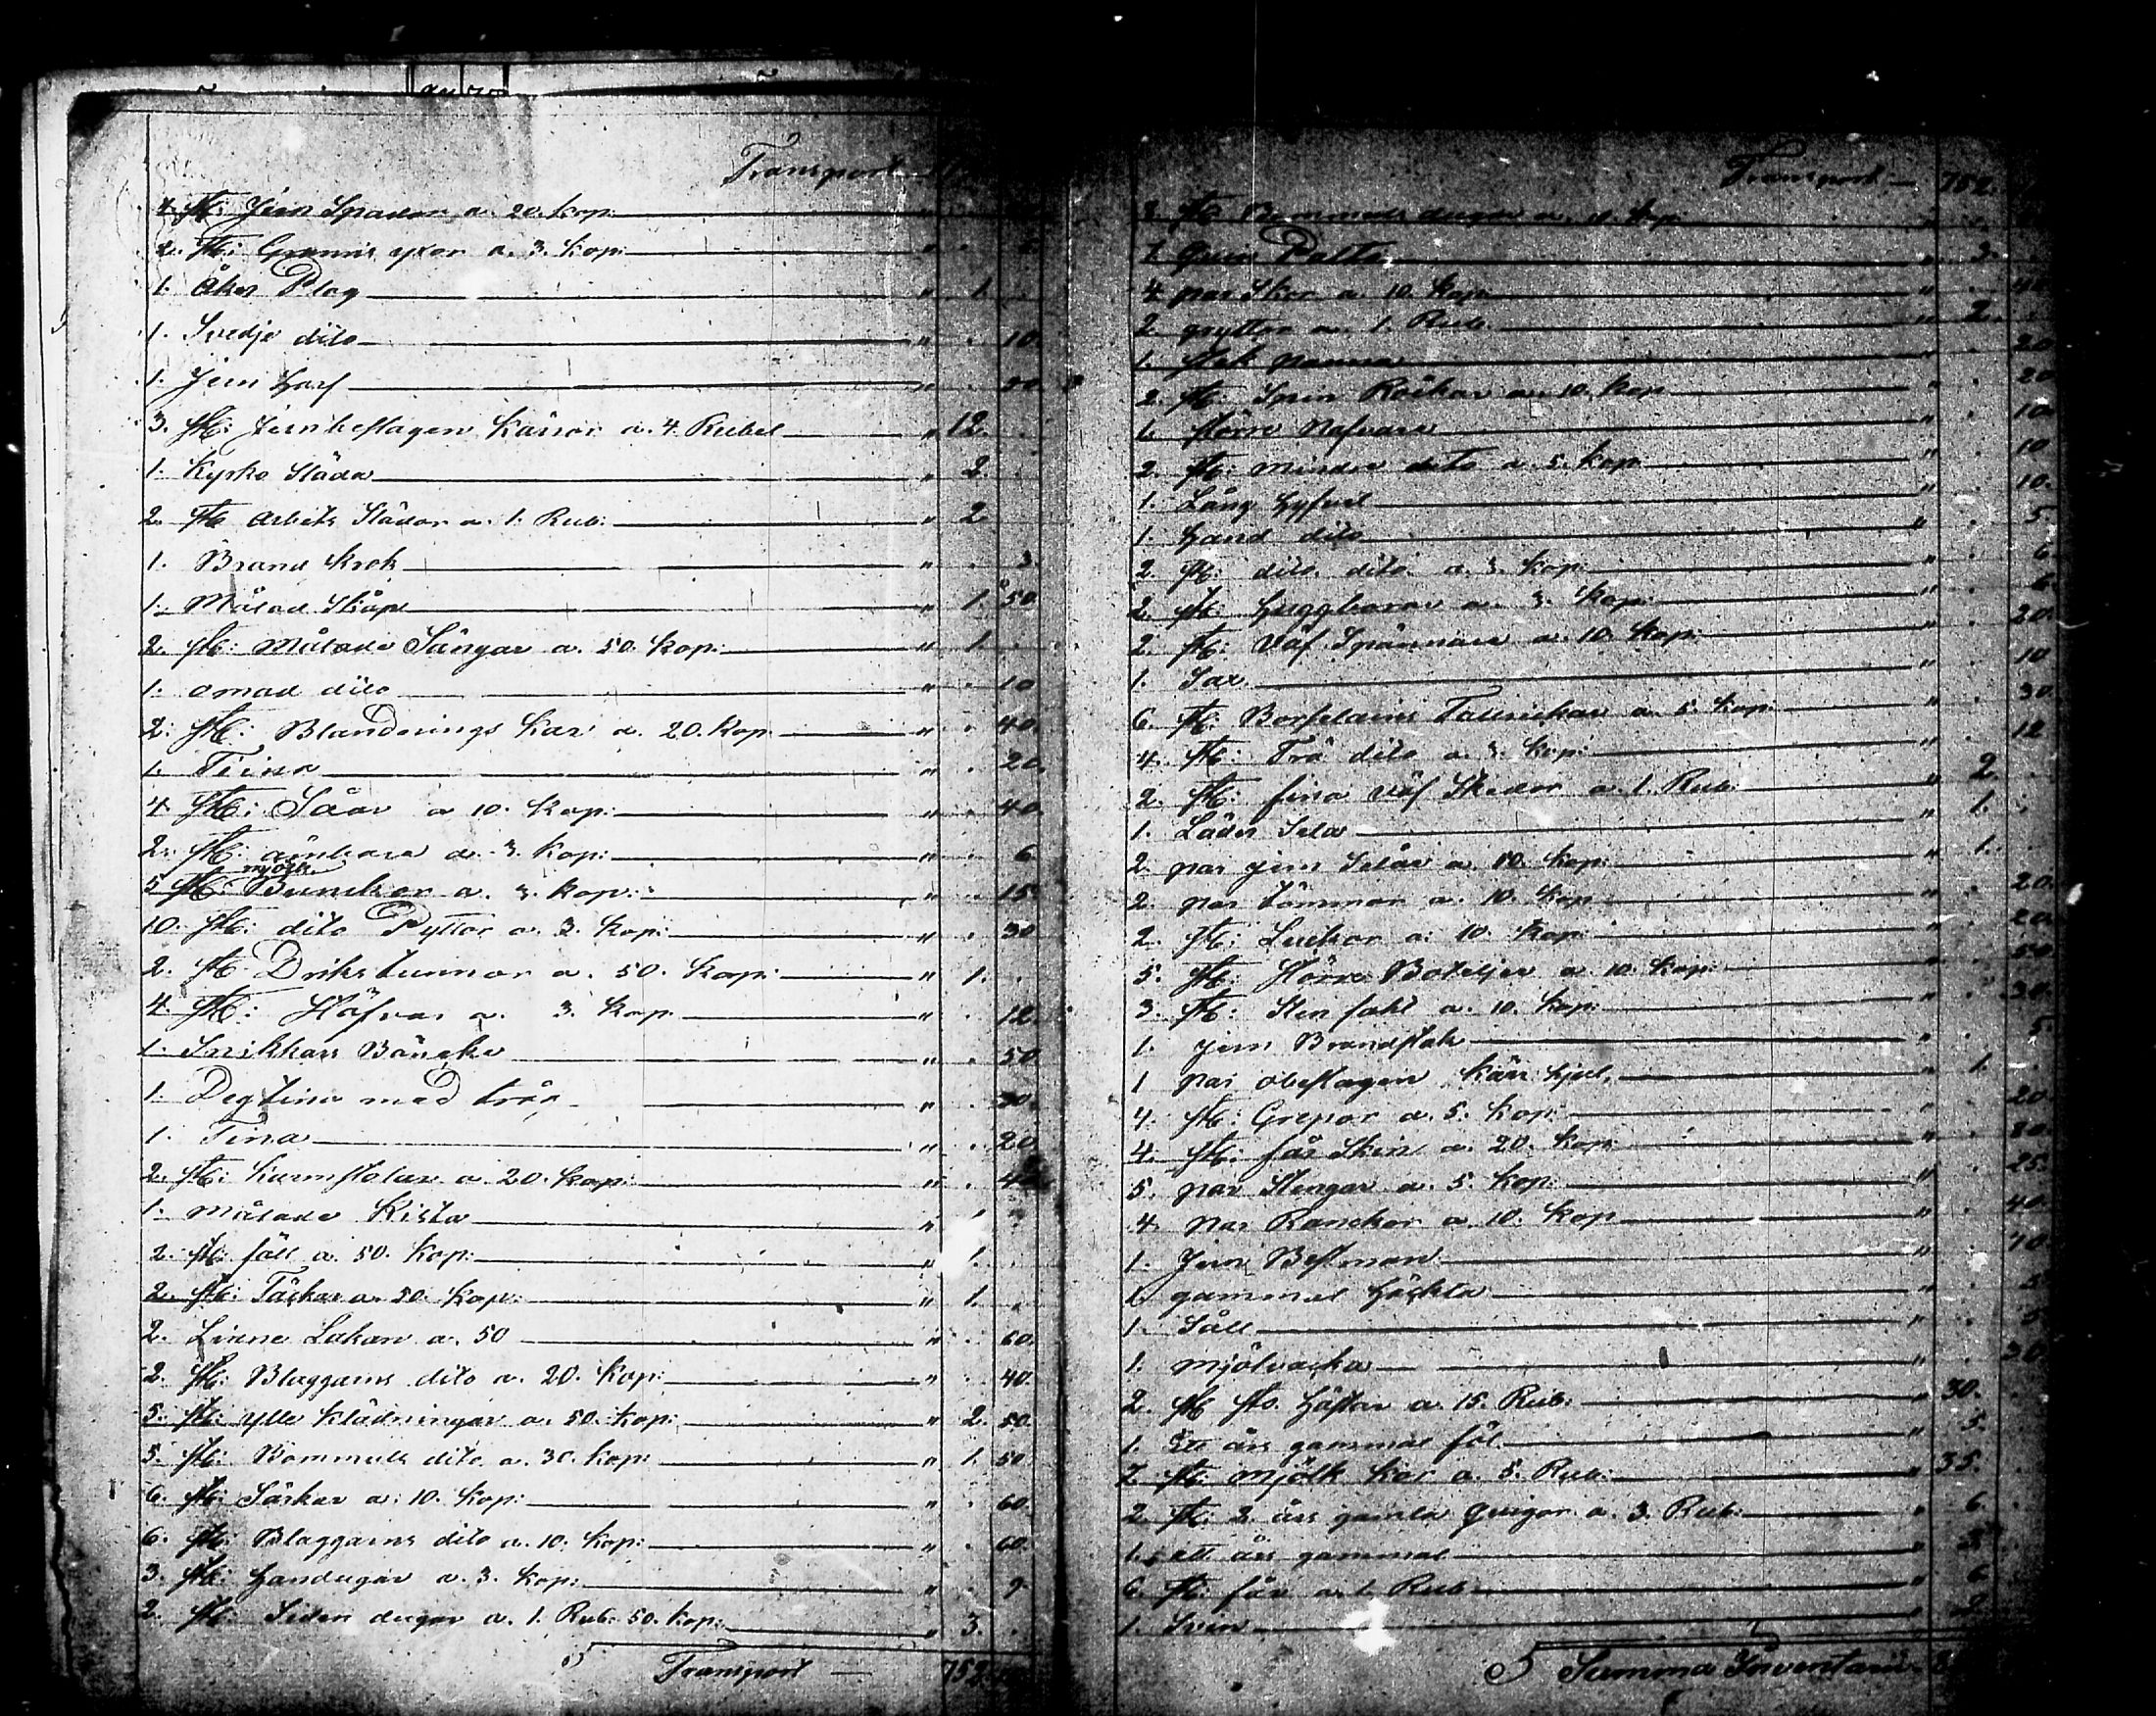 Transport
4. St: Jern Spador a. 20. kop: "
2. St: yxor a. 3. kop: " .
1. Åker Plog " 1. .
1. Svedje dito " . 10.
1. Jern Harf " . 50.
3. St: Jernbeslagen Kärror a. 4. Rubel " 12. .
1. Kyrko Släda " 2. .
2. St: Arbets Slädar a. 1. Rub: " 2
1. Brand krok " . 3.
1. Målad Skåp " 1. 50.
2. St: Målade Sängar a. 50. kop: " 1. .
1. omad dito " . 10
2. St: Blandnings kar a. 20. kop " . 40.
1. Tiina " . 20.
4. St: Såar a 10. Kop: " . 40.
2. St: ämbare a. 3. kop: " . 6
mjölk
5 St: Bunckor a. 3. kop: " . 15
10. St: dito Pyttor a. 3. kop: " . 30
2. St: Drikstunnor a. 50. kop: " 1. .
4. St: Höfvar a. 3. kop. " . 12.
1. Snikkars Bäncke " . 50
1. Degtina med tråg " . 30.
1. Tina " . 20
2. St: karmstolar a. 20. kop: " . 40
1. målade Kista " 1.
2. St: fäll a. 50. kop: " 1. .
2. St: Täckar a. 50. kop: " 1. .
2. Linne Lakan a. 50 " . 60.
2. St: Blaggarns dito a. 20. kop: " . 40.
5. St: ylle klädningar a. 50. kop: " 2. 50.
5. St: Bommulls dito a. 30. kop: " 1. 50
6. St: Särkar a: 10. kop: " . 60.
6. St: Blaggarns dito a. 10. kop: " . 60.
3. St: Handugar a. 3. kop: " . 9.
2. St: Siden dugar a. 1. Rub: 50. kop: " 3. .
Transport 752
Transport 752
St: Bommuls dugar a. kop:
1. Palto " 3.
4 par Skor a. 10. kop " . 40.
2. gryttor a. 1. Rub. " 2. .
1. stek panna " . 20
2. St: Spin Råckar a. 10. kop " . 20
1. större Nafvare " . 10.
2. St: mindre dito a. 5. kop " . 10
1. Lång Hyfvel " . 10.
1. Hand dito " . 5
2. St: dito dito a. 3. kop: " . 6
2. St: Huggbarar a. 3. kop: " . 6.
2. St: Väf Spännare a. 10. kop: " . 20.
1. Sax " . 10
6. St: Borslains Tallrickar a. 5. kop: " . 30.
4. St: Trä dito a. 3. kop: " . 12
2. St: fina väf Skedor a. 1. Rub: " 2. .
1. Läder Sela " 1. .
2. par jern Selar a. 10. kop: " 1. .
2. par tömmar a. 10. kop " . 20.
2. St: Luckor a: 10. kop: " . 20
5. St: Större Boteljer a. 10. kop: " . 50
3. St: Sten fahl a. 10. kop: " . 30.
1. jern Brandstak " . 5.
1 par obeslagen kärr hjul, " 1. .
4. St: Grepor a. 5. kop: " . 20
4. St: får Skin a. 20. kop: " . 80.
5. par Stengar a. 5. kop: " . 25.
4. par Ranckor a. 10. kop " . 40.
1. Jern Bestman " . 70
1. gammal Häckla " . 5
1. Såll " . 5
1. mjölvacka " . 30.
2. St: Sto. Hästar a. 15. Rub: " 30. .
1. Ett års gammal föl " 5. .
7. St: mjölk kor a. 5. Rub: " 35. .
2. St: 2. års gamla quigor a. 3. Rub: " 6. .
1. ett års gammal "
6. St: får a. 1. Rub: " 6
1. Svin " 2.
Summa Inventarie